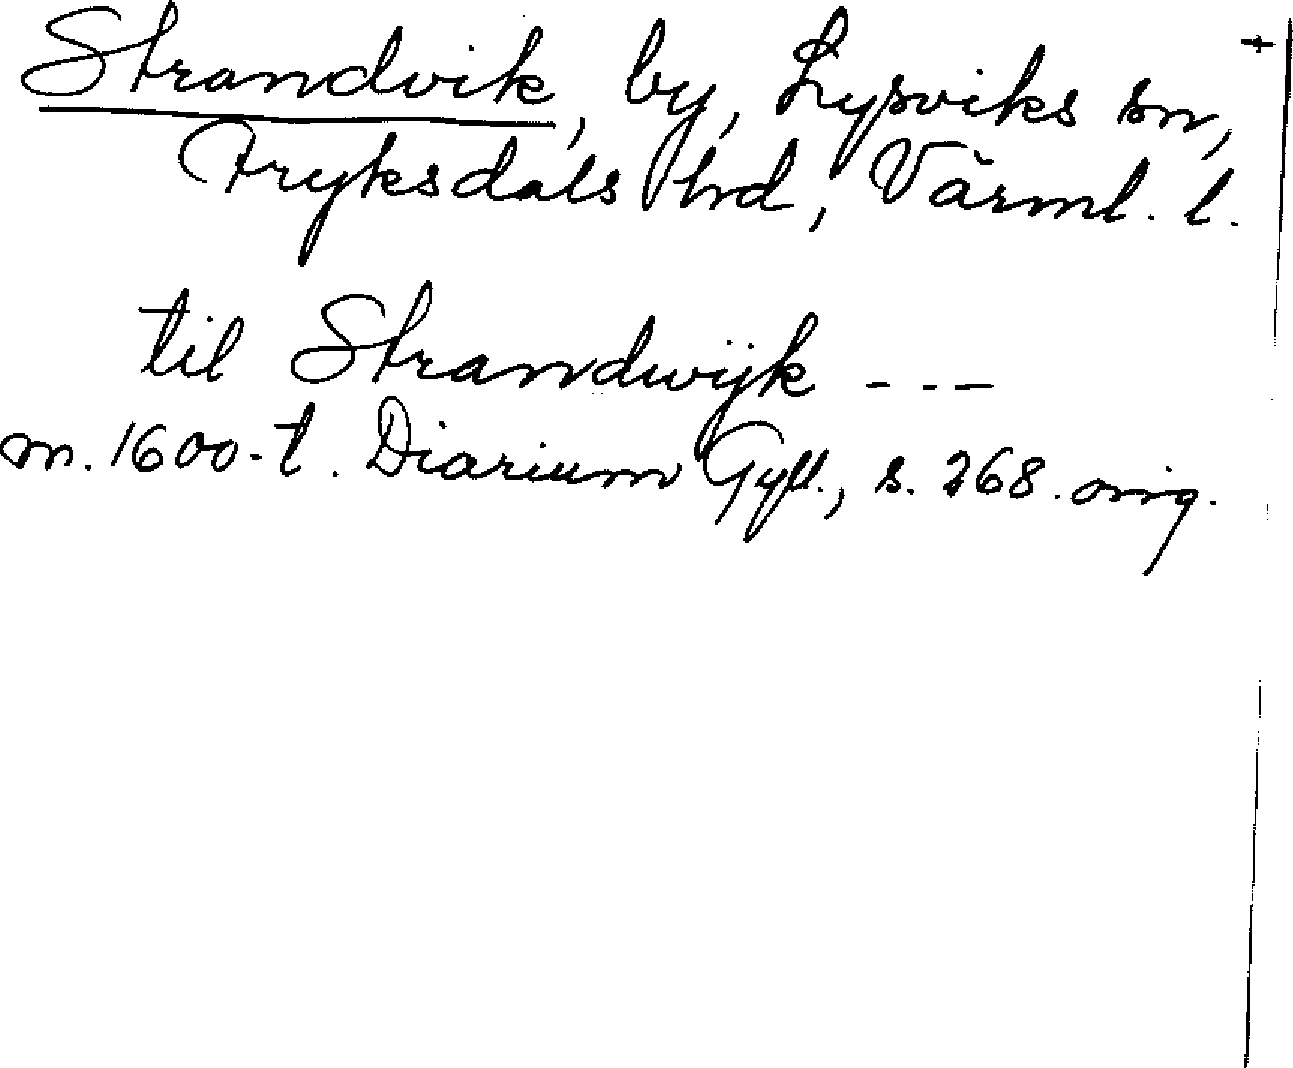 Strandvik, by, Lysviks sn, +
Fryksdals hrd, Värml. l.
til Strandwijk ---
m. 1600-t. Diarium Gyll., s. 268. orig.